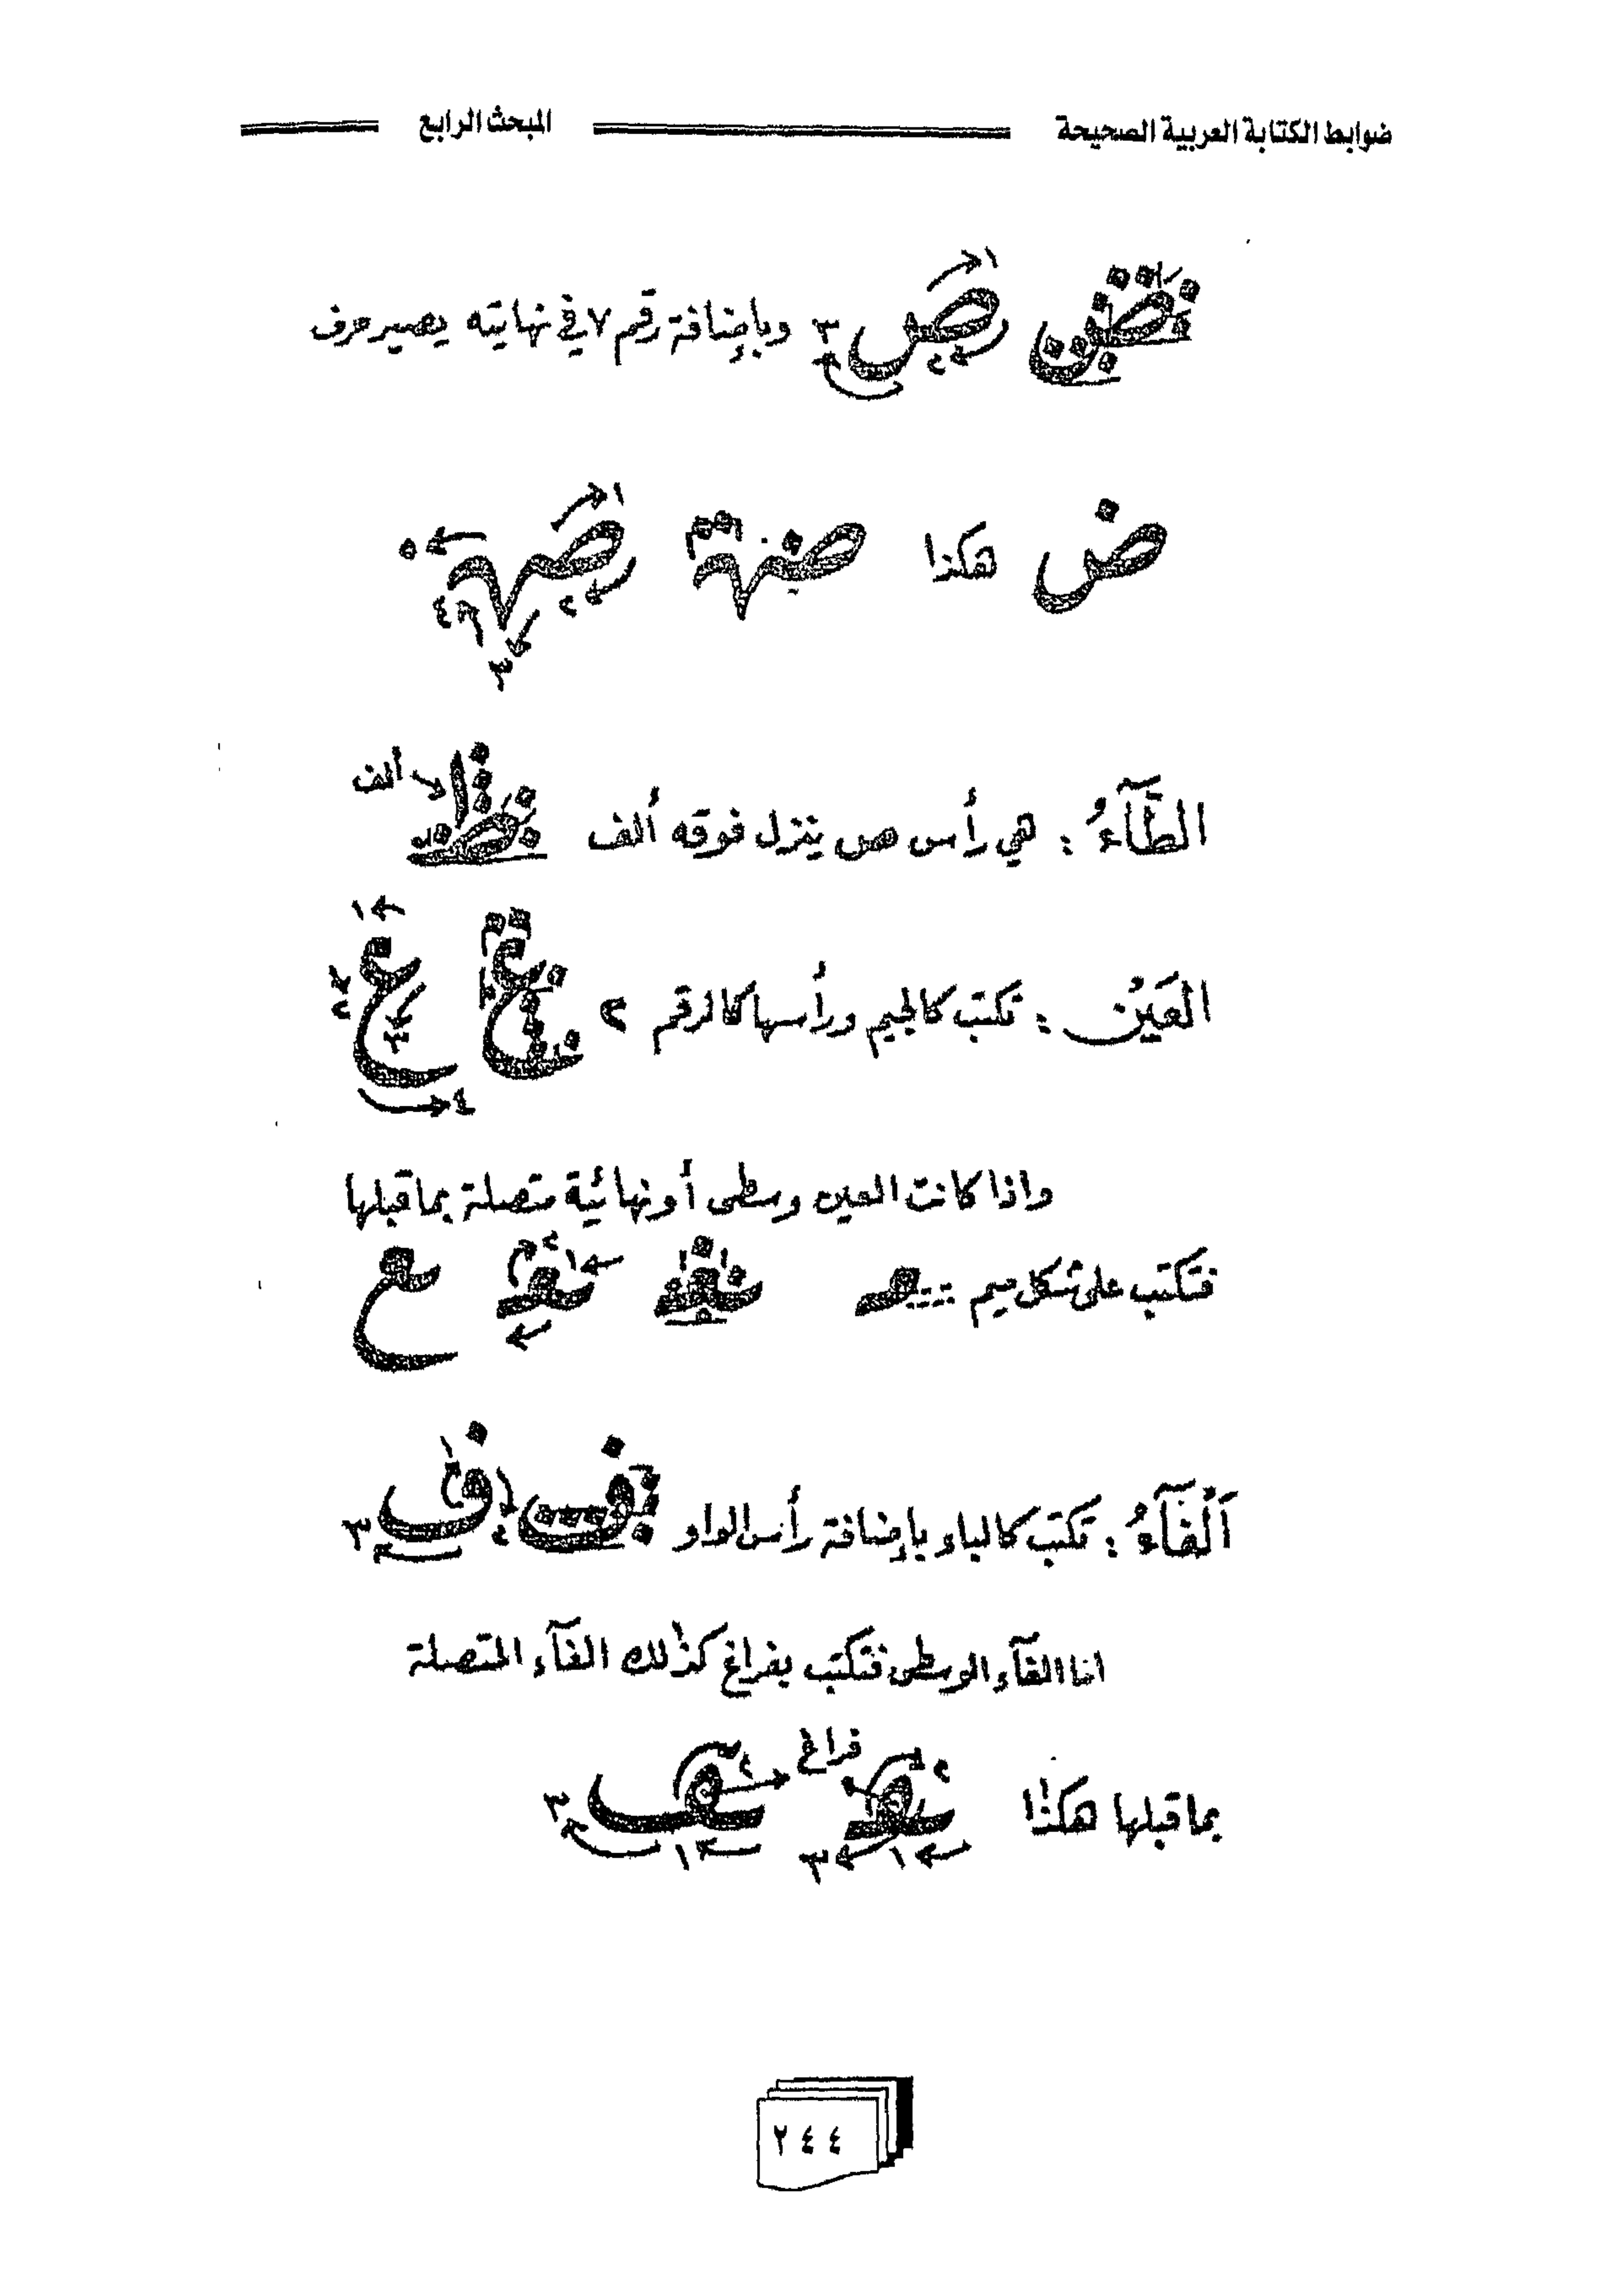 ضوابط الكتابة العربية الصحيحة المبحث الرابع
ص وبإضافة رقم ٧ في نهايته يصير حرف
ض هكذا
الطَّآءُ : هي رأس ص ينزل فوقه ألف ألف
العَيْن : تكتب كالجيم ورأسها كالرقم ٢
واذا كانت العين وسطى أو نهائية متصلة بما قبلها
فتكتب على شكل ميم
اَلْفَآءُ : تكتب كالباء بإضافة رأس الواو ف
اما الفآء الوسطى فتكتب بفراغ كذٰلك الفآء المتصلة
بما قبلها هكذٰا فراغ
٢٤٤